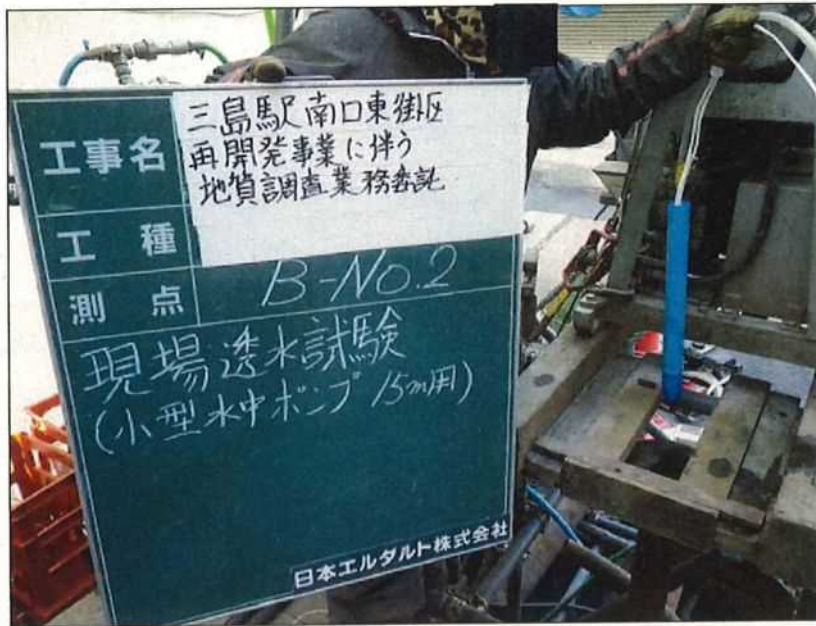 工事名
三島駅南口東街区
再開発事業に伴う
地質調査業務委託
工種
測点 B-No.2
現場透水試験
(小型水中ポンプ 15m用)
日本エルダルト株式会社